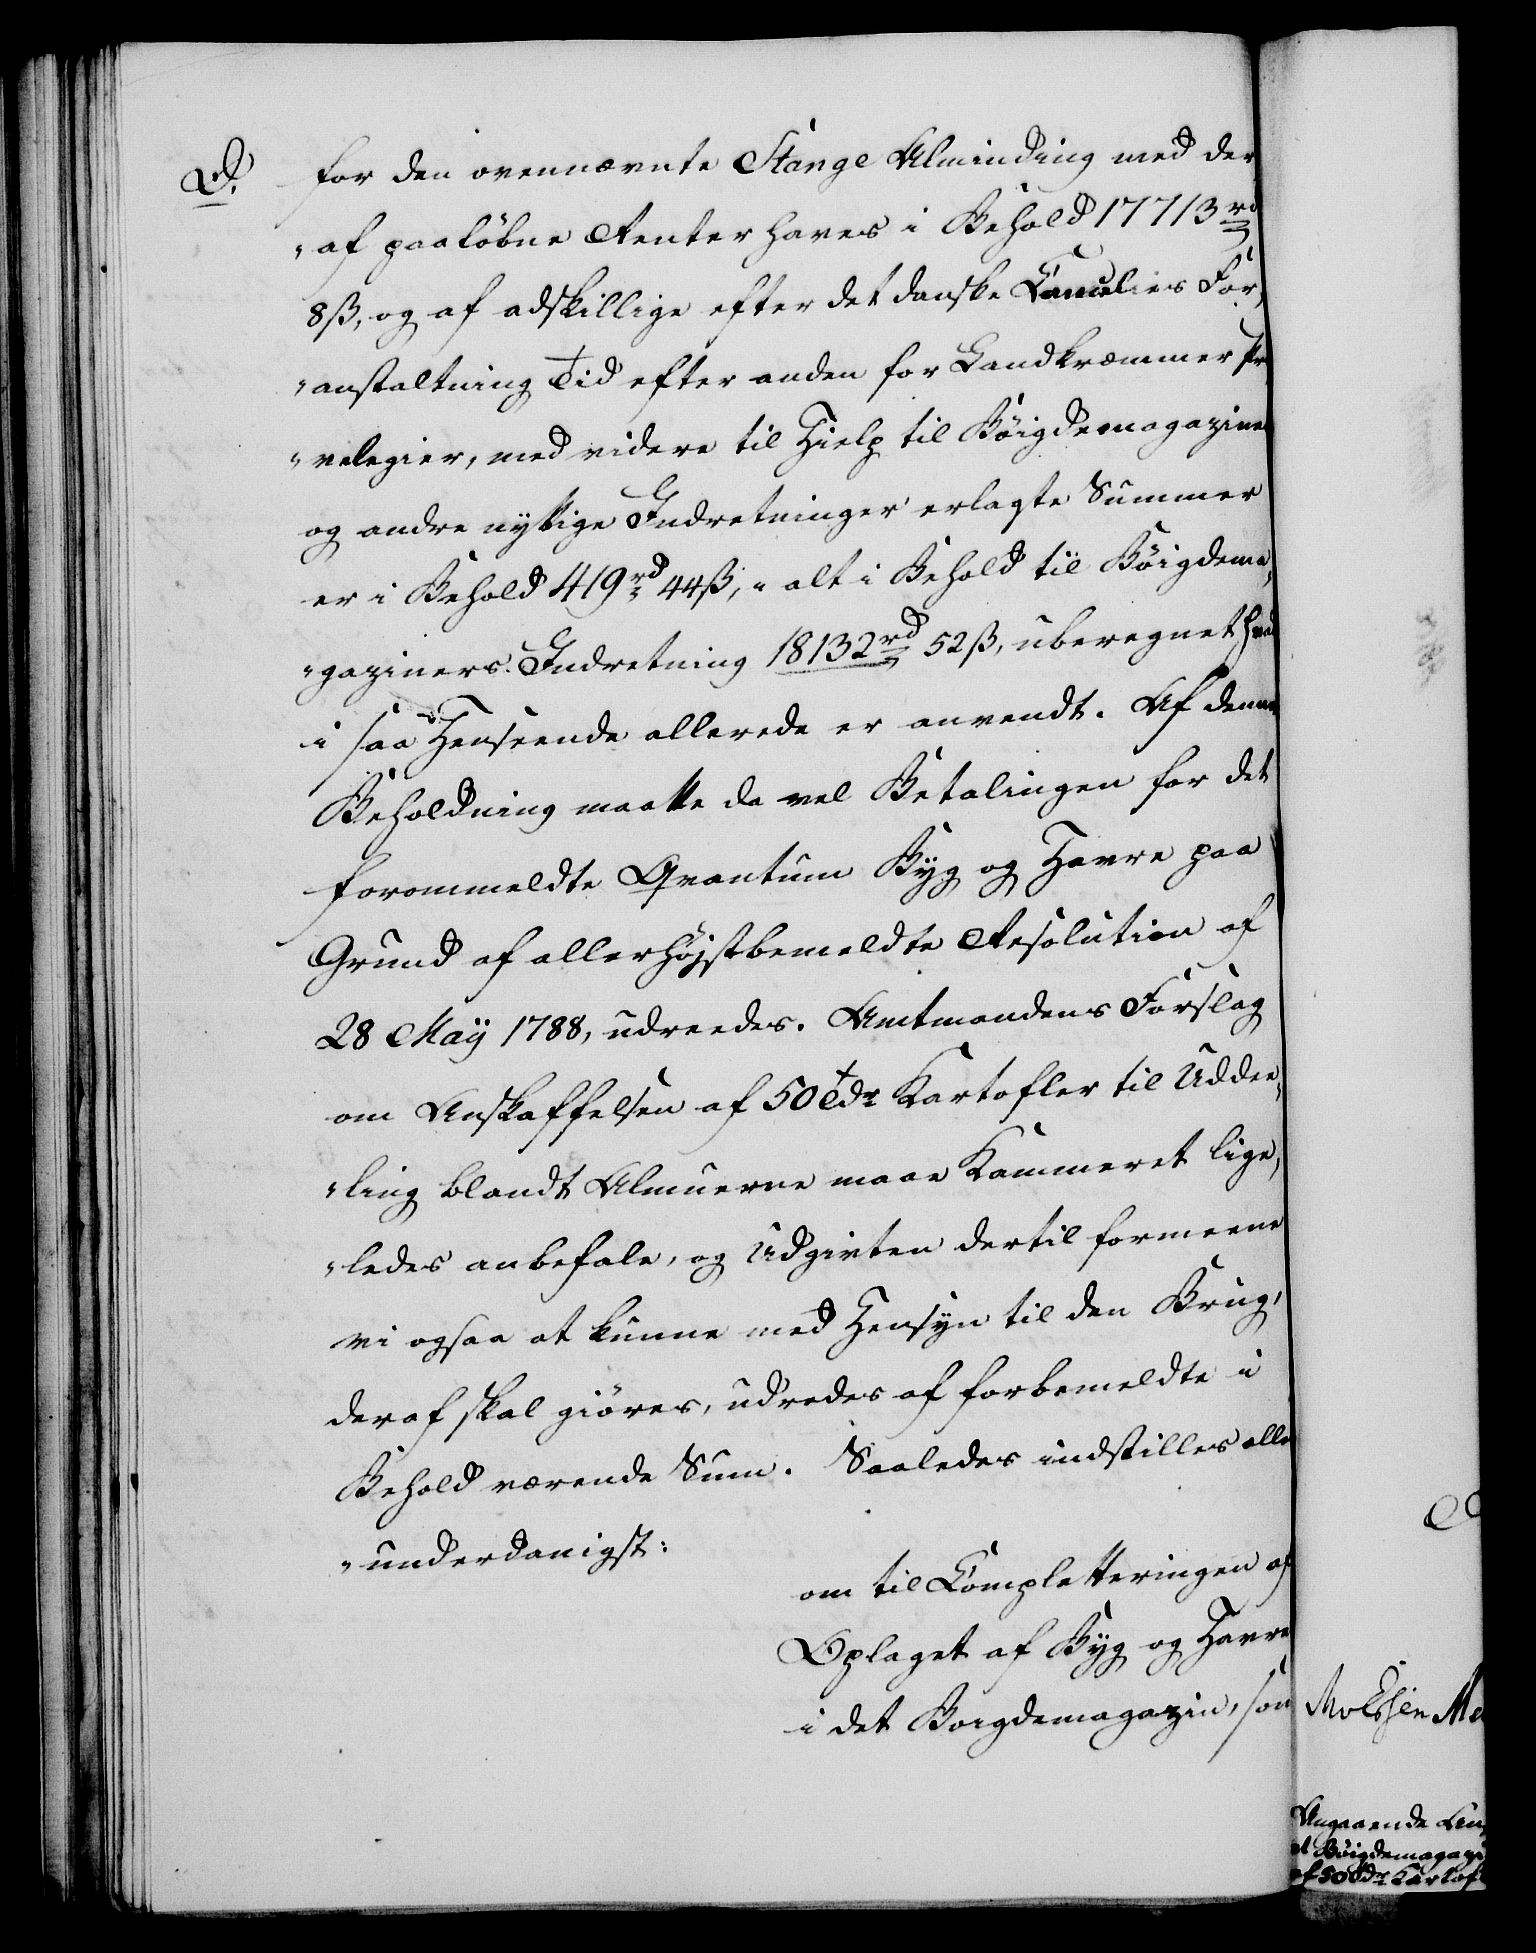 D.
for den ovennævnte Stange Alminding med der
"af paaløbne Renter haves i Behold 17713 rd
8ß, og af adskillige efter det danske Cancelies For,
"anstaltning Tid efter anden for Landkræmmer Pri
"velegier, med videre til Hielp til Böigdemagaziner
og andre nyttige Indretninger erlagte Summer
er i Behold 419 rd 44ß, " alt i Behold til Böigdema,
"gaziners Indretning 18132 rd 52ß, uberegnet hvad
i saa Henseende allerede er anvendt. Af denne
Beholdning maatte da vel Betalingen for det
forommeldte Qvantum Byg og Havre paa
Grund af allerhøjstbemeldte Resolution af
28 Maij 1788, udreedes. Amtmandens Forslag
om Anskaffelsen af 50 Tdr Kartofler til Uddee,
"ling blandt Almuerne maae Kammeret lige,
"ledes anbefale, og Udgivten dertil formeene
vi ogsaa at kunne med Hensyn til den Brug,
deraf skal giöres, udredes af forbemeldte i
Behold værende Sum. Saaledes indstilles aller
"underdanigst:
om til Completteringen af
Oplaget af Byg og Havre
i det Boigdemagazin, som
Angaaende
Böigdemagazi
af 50 Tdr Kartof